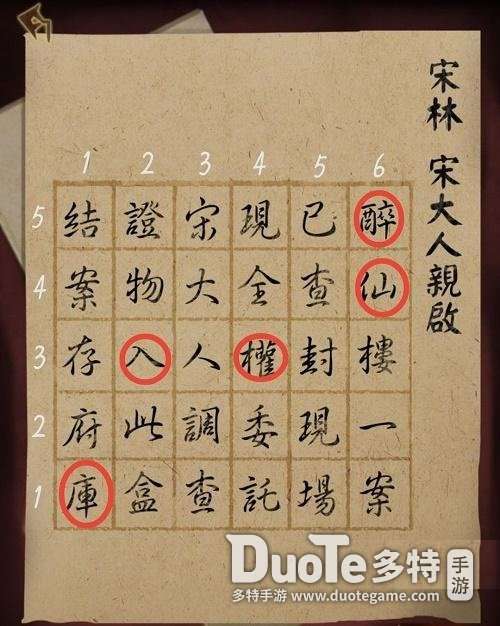 宋林 宋大人親啟
1 2 3 4 5 6
5 4 3 2 1
醉仙樓一案
已查封現場
現全權委託
宋大人調查
證物入此盒
結案存府庫
DUOTE多特手游
多特手游 www.duotegame.com